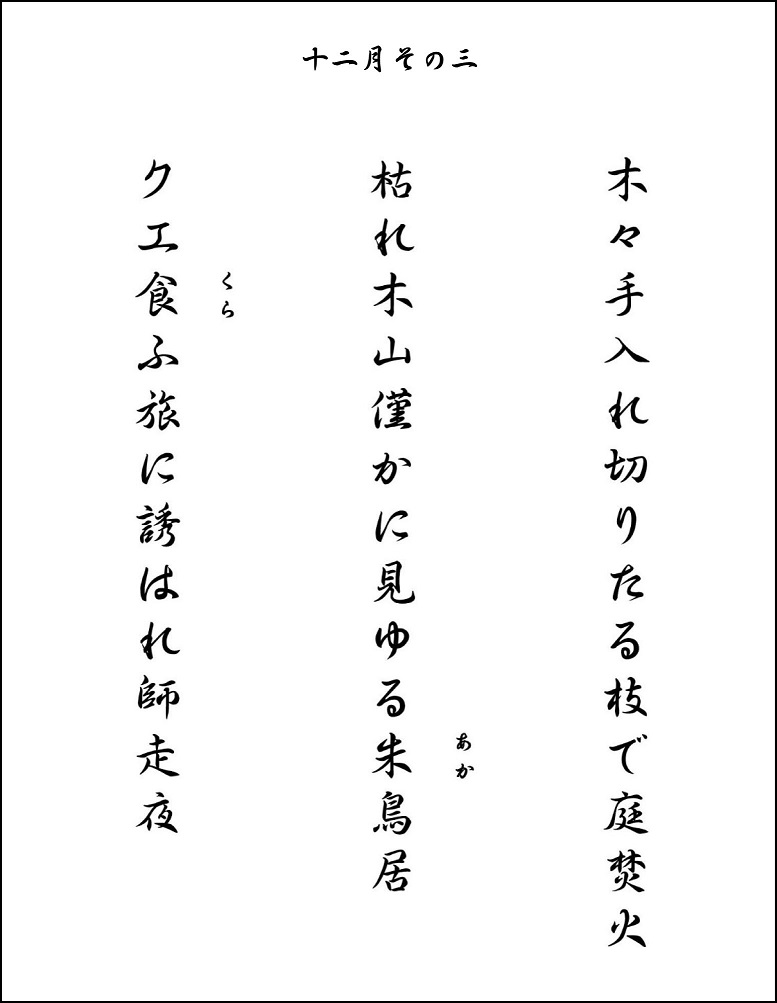 十二月その三
木々手入れ切りたる枝で庭焚火
枯れ木山僅かに見ゆる朱鳥居
あか
クエ食ふ旅に誘はれ師走夜
くら